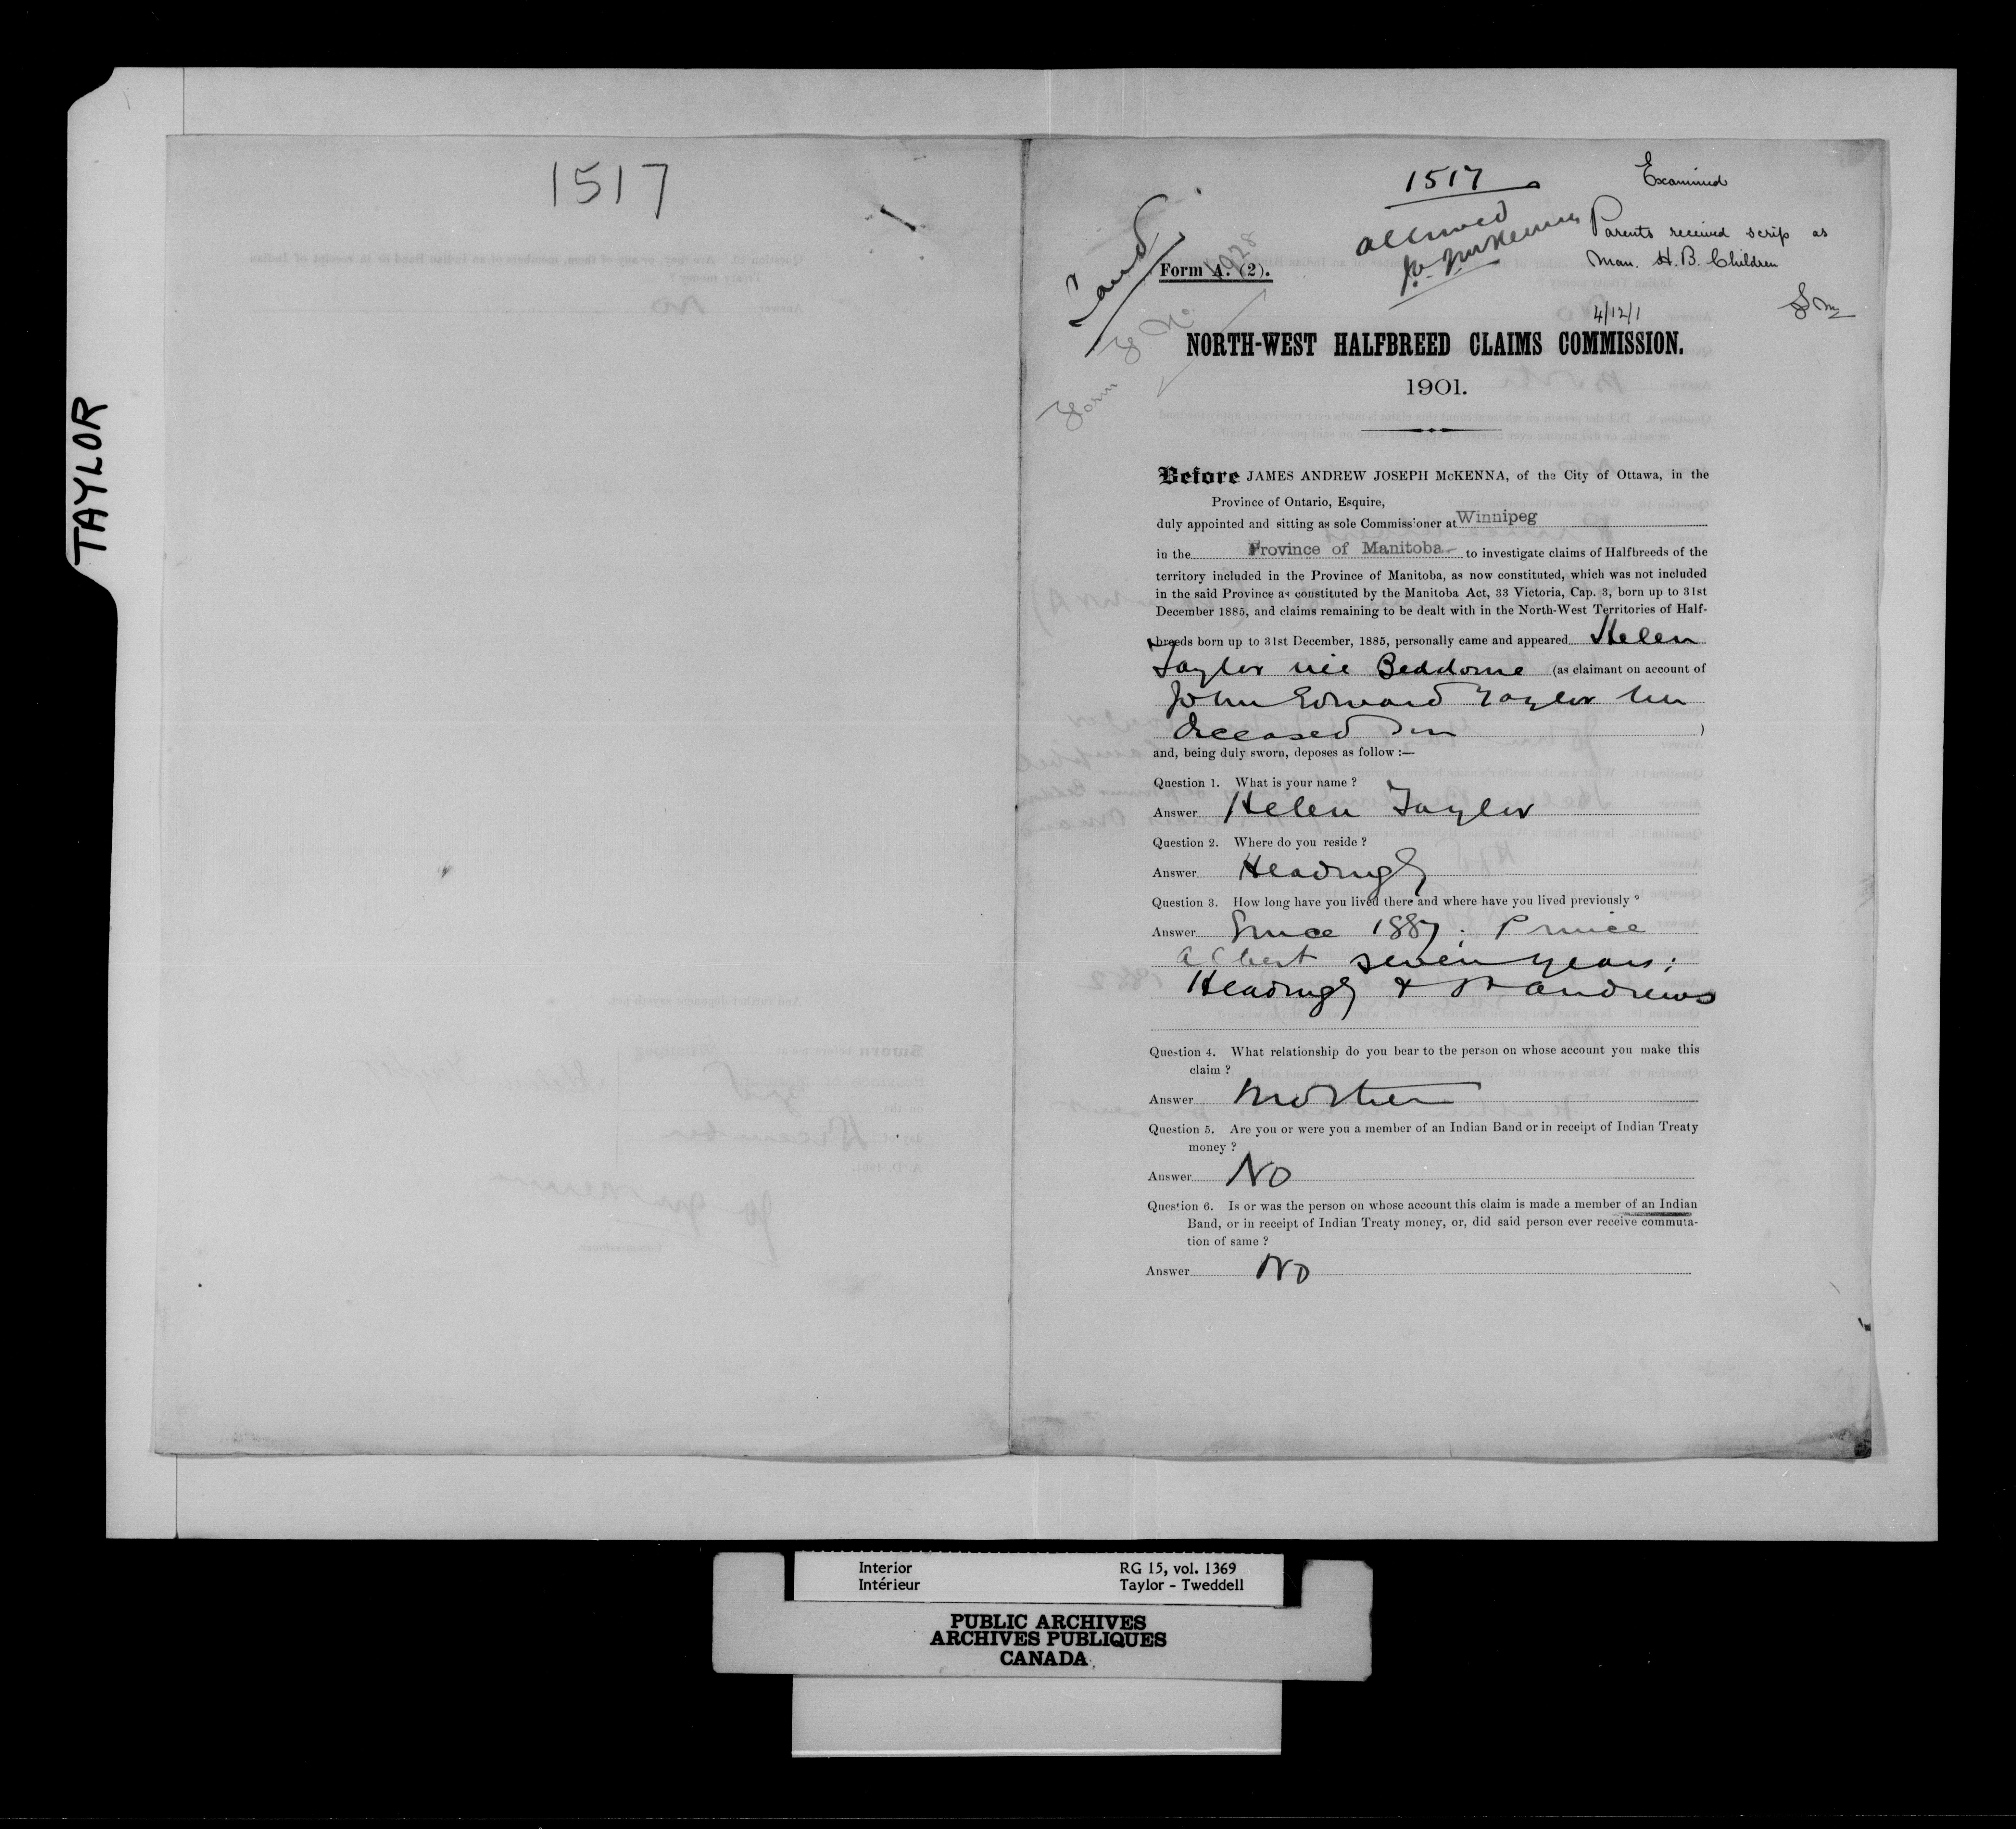 TAYLOR
1517
1517
Examined
Land
allowed
Parents received scrip as
Man. H. B. Children
Form A. (2).
Form
4/12/1
NORTH-WEST HALFBREED CLAIMS COMMISSION.
1901.
Before JAMES ANDREW JOSEPH McKENNA, of the City of Ottawa, in the
Province of Ontario, Esquire,
duly appointed and sitting as sole Commissioner at Winnipeg
in the Province of Manitoba to investigate claims of Halfbreeds of the
territory included in the Province of Manitoba, as now constituted, which was not included
in the said Province as constituted by the Manitoba Act, 33 Victoria, Cap. 3, born up to 31st
December 1885, and claims remaining to be dealt with in the North-West Territories of Half-
breeds born up to 31st December, 1885, personally came and appeared Helen
Taylor née Beddome (as claimant on account of
John Edward Taylor her
deceased son )
and, being duly sworn, deposes as follow :—
Question 1. What is your name ?
Answer Helen Taylor
Question 2. Where do you reside ?
Answer Headingly
Question 3. How long have you lived there and where have you lived previously ?
Answer Since 1887; Prince
Albert seven years;
Headingly & St Andrews
Question 4. What relationship do you bear to the person on whose account you make this
claim ?
Answer Mother
Question 5. Are you or were you a member of an Indian Band or in receipt of Indian Treaty
money ?
Answer No
Question 6. Is or was the person on whose account this claim is made a member of an Indian
Band, or in receipt of Indian Treaty money, or, did said person ever receive commuta-
tion of same ?
Answer No
Interior RG 15, vol. 1369
Intérieur Taylor - Tweddell
PUBLIC ARCHIVES
ARCHIVES PUBLIQUES
CANADA